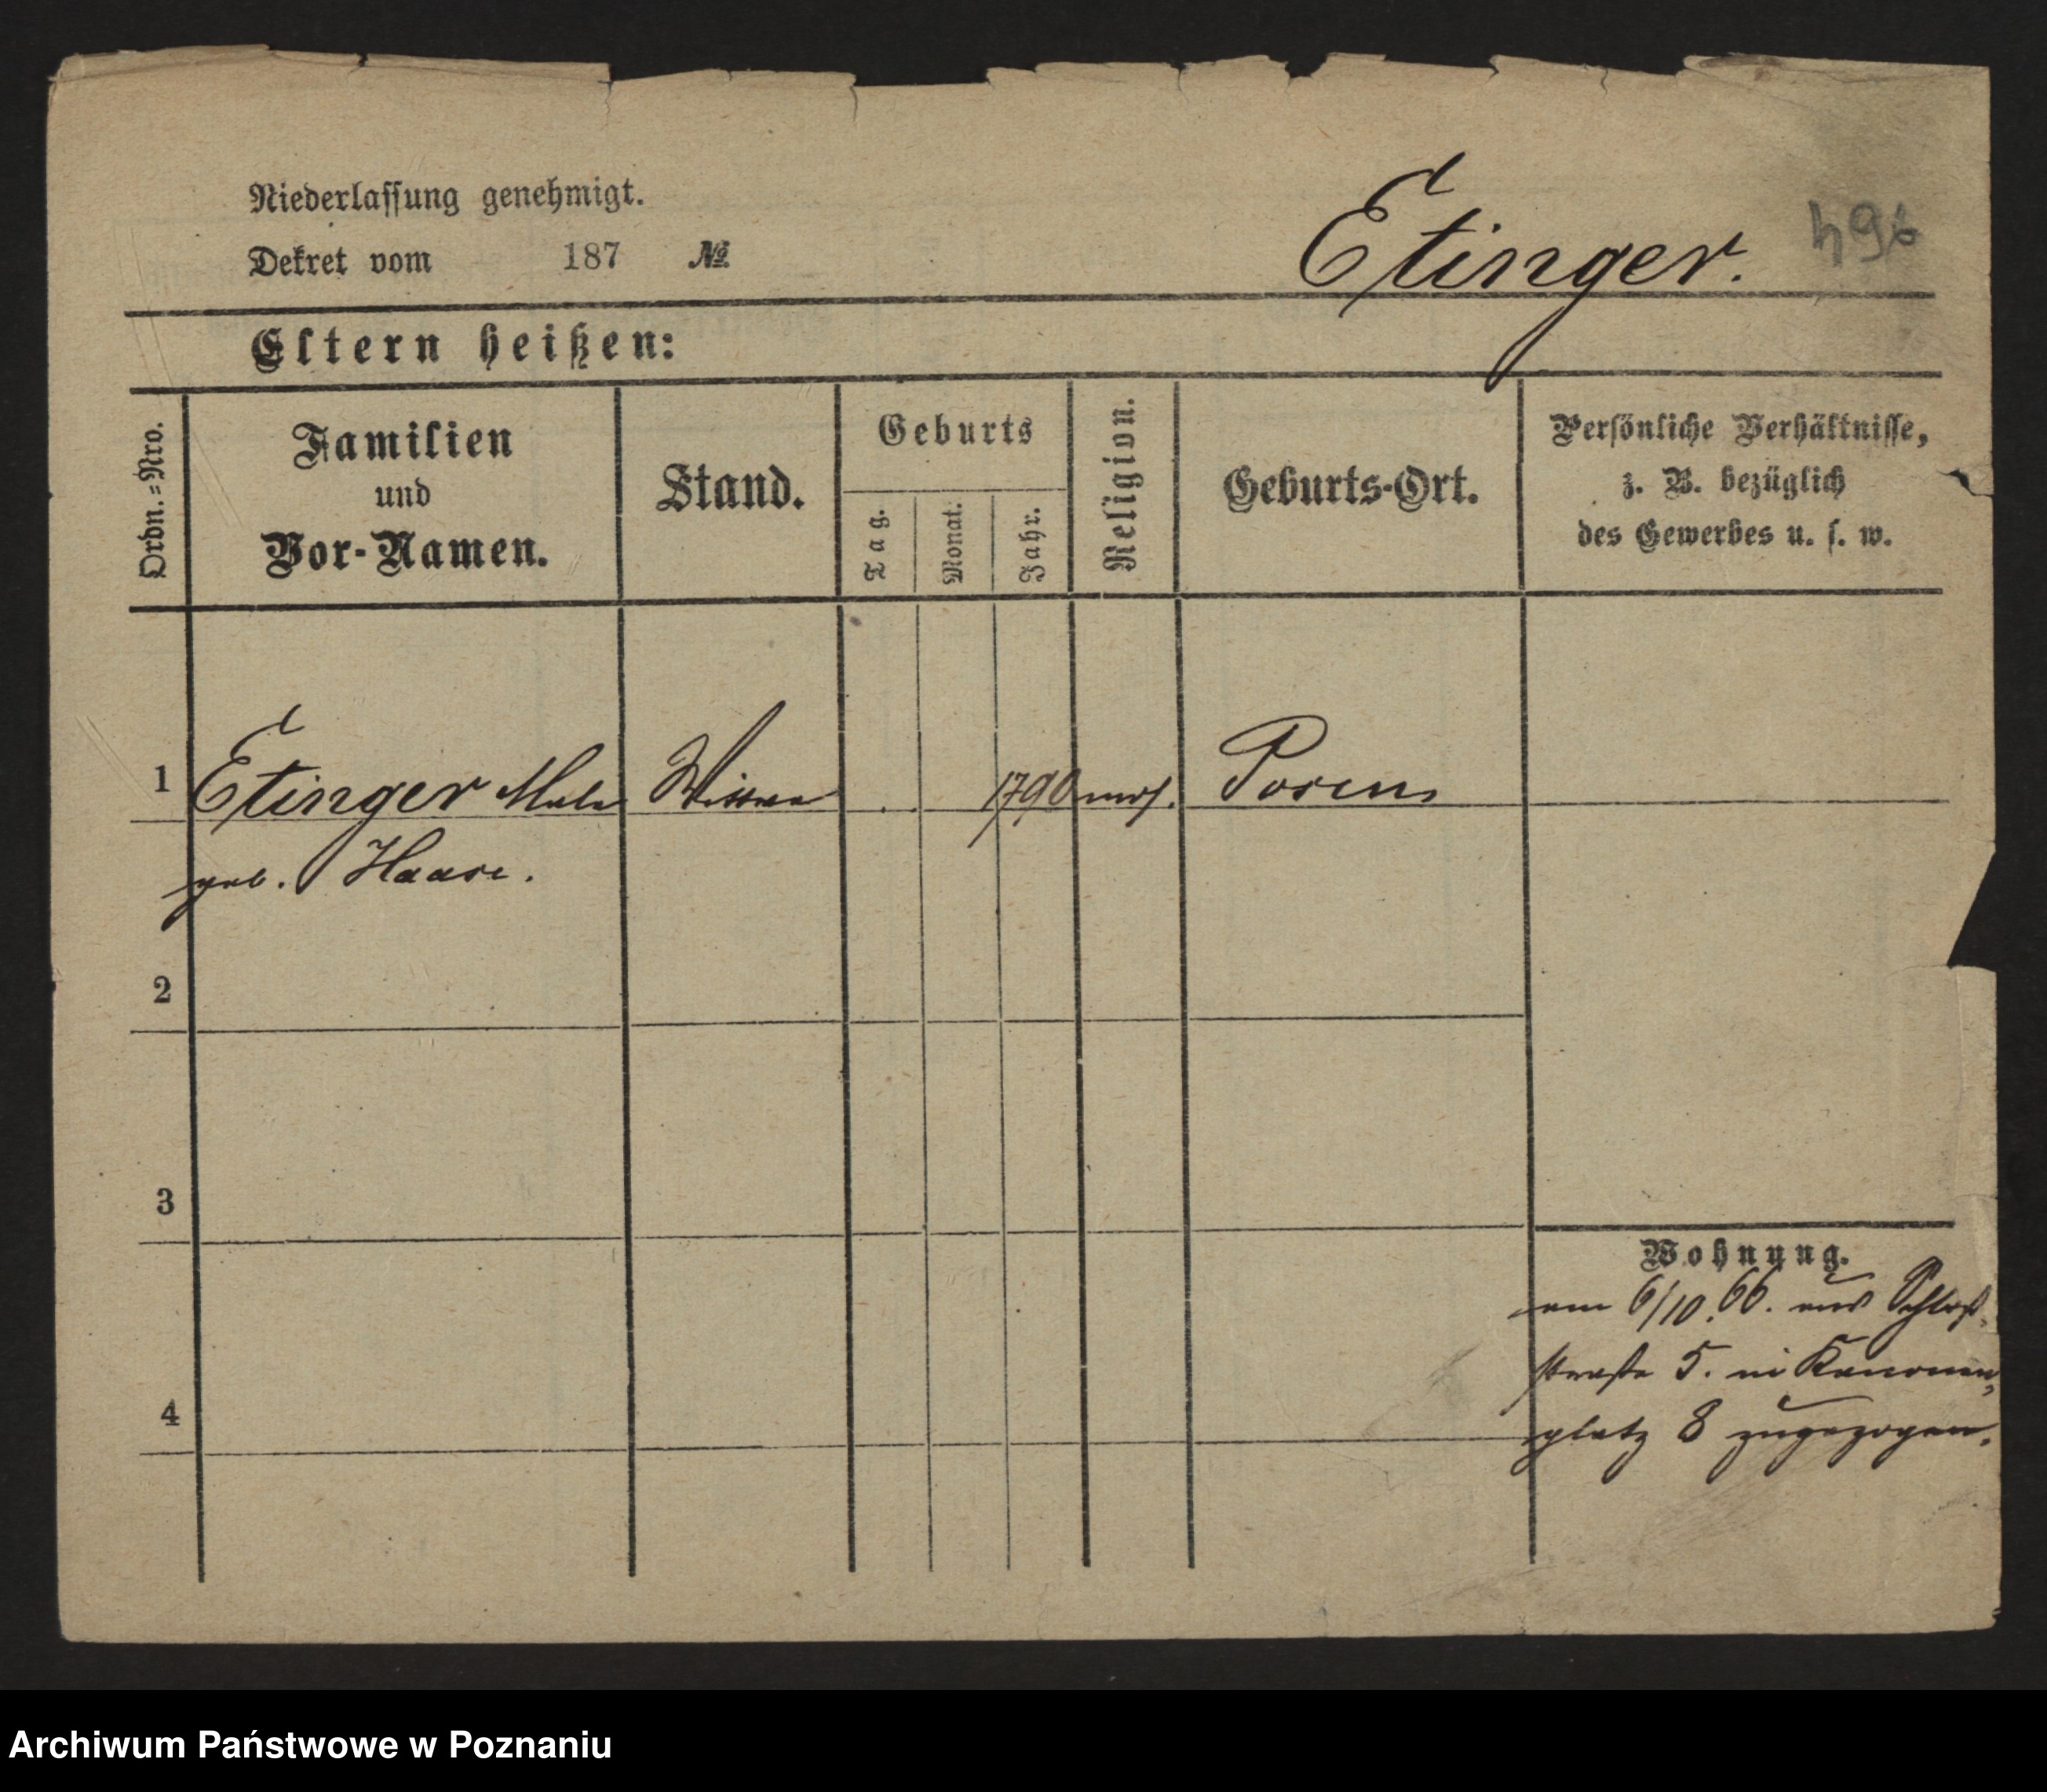 Niederlassung genehmigt.
Dekret vom 187 №
Etinger.
Eltern heißen:
Ordn.=Nro.
Familien
und
Vor-Namen.
Stand.
Geburts
Tag.
Monat.
Jahr.
Religion.
Geburts-Ort.
Persönliche Verhältnisse,
z. B. bezüglich
des Gewerbes u. s. w.
1 Etinger 1790 mos. Posen
geb. Haase.
2
3
Wohnung.
am 6/10. 66. aus Schloß
straße 5. in Kanonen
4
platz 8 zugezogen.
Archiwum Państwowe w Poznaniu